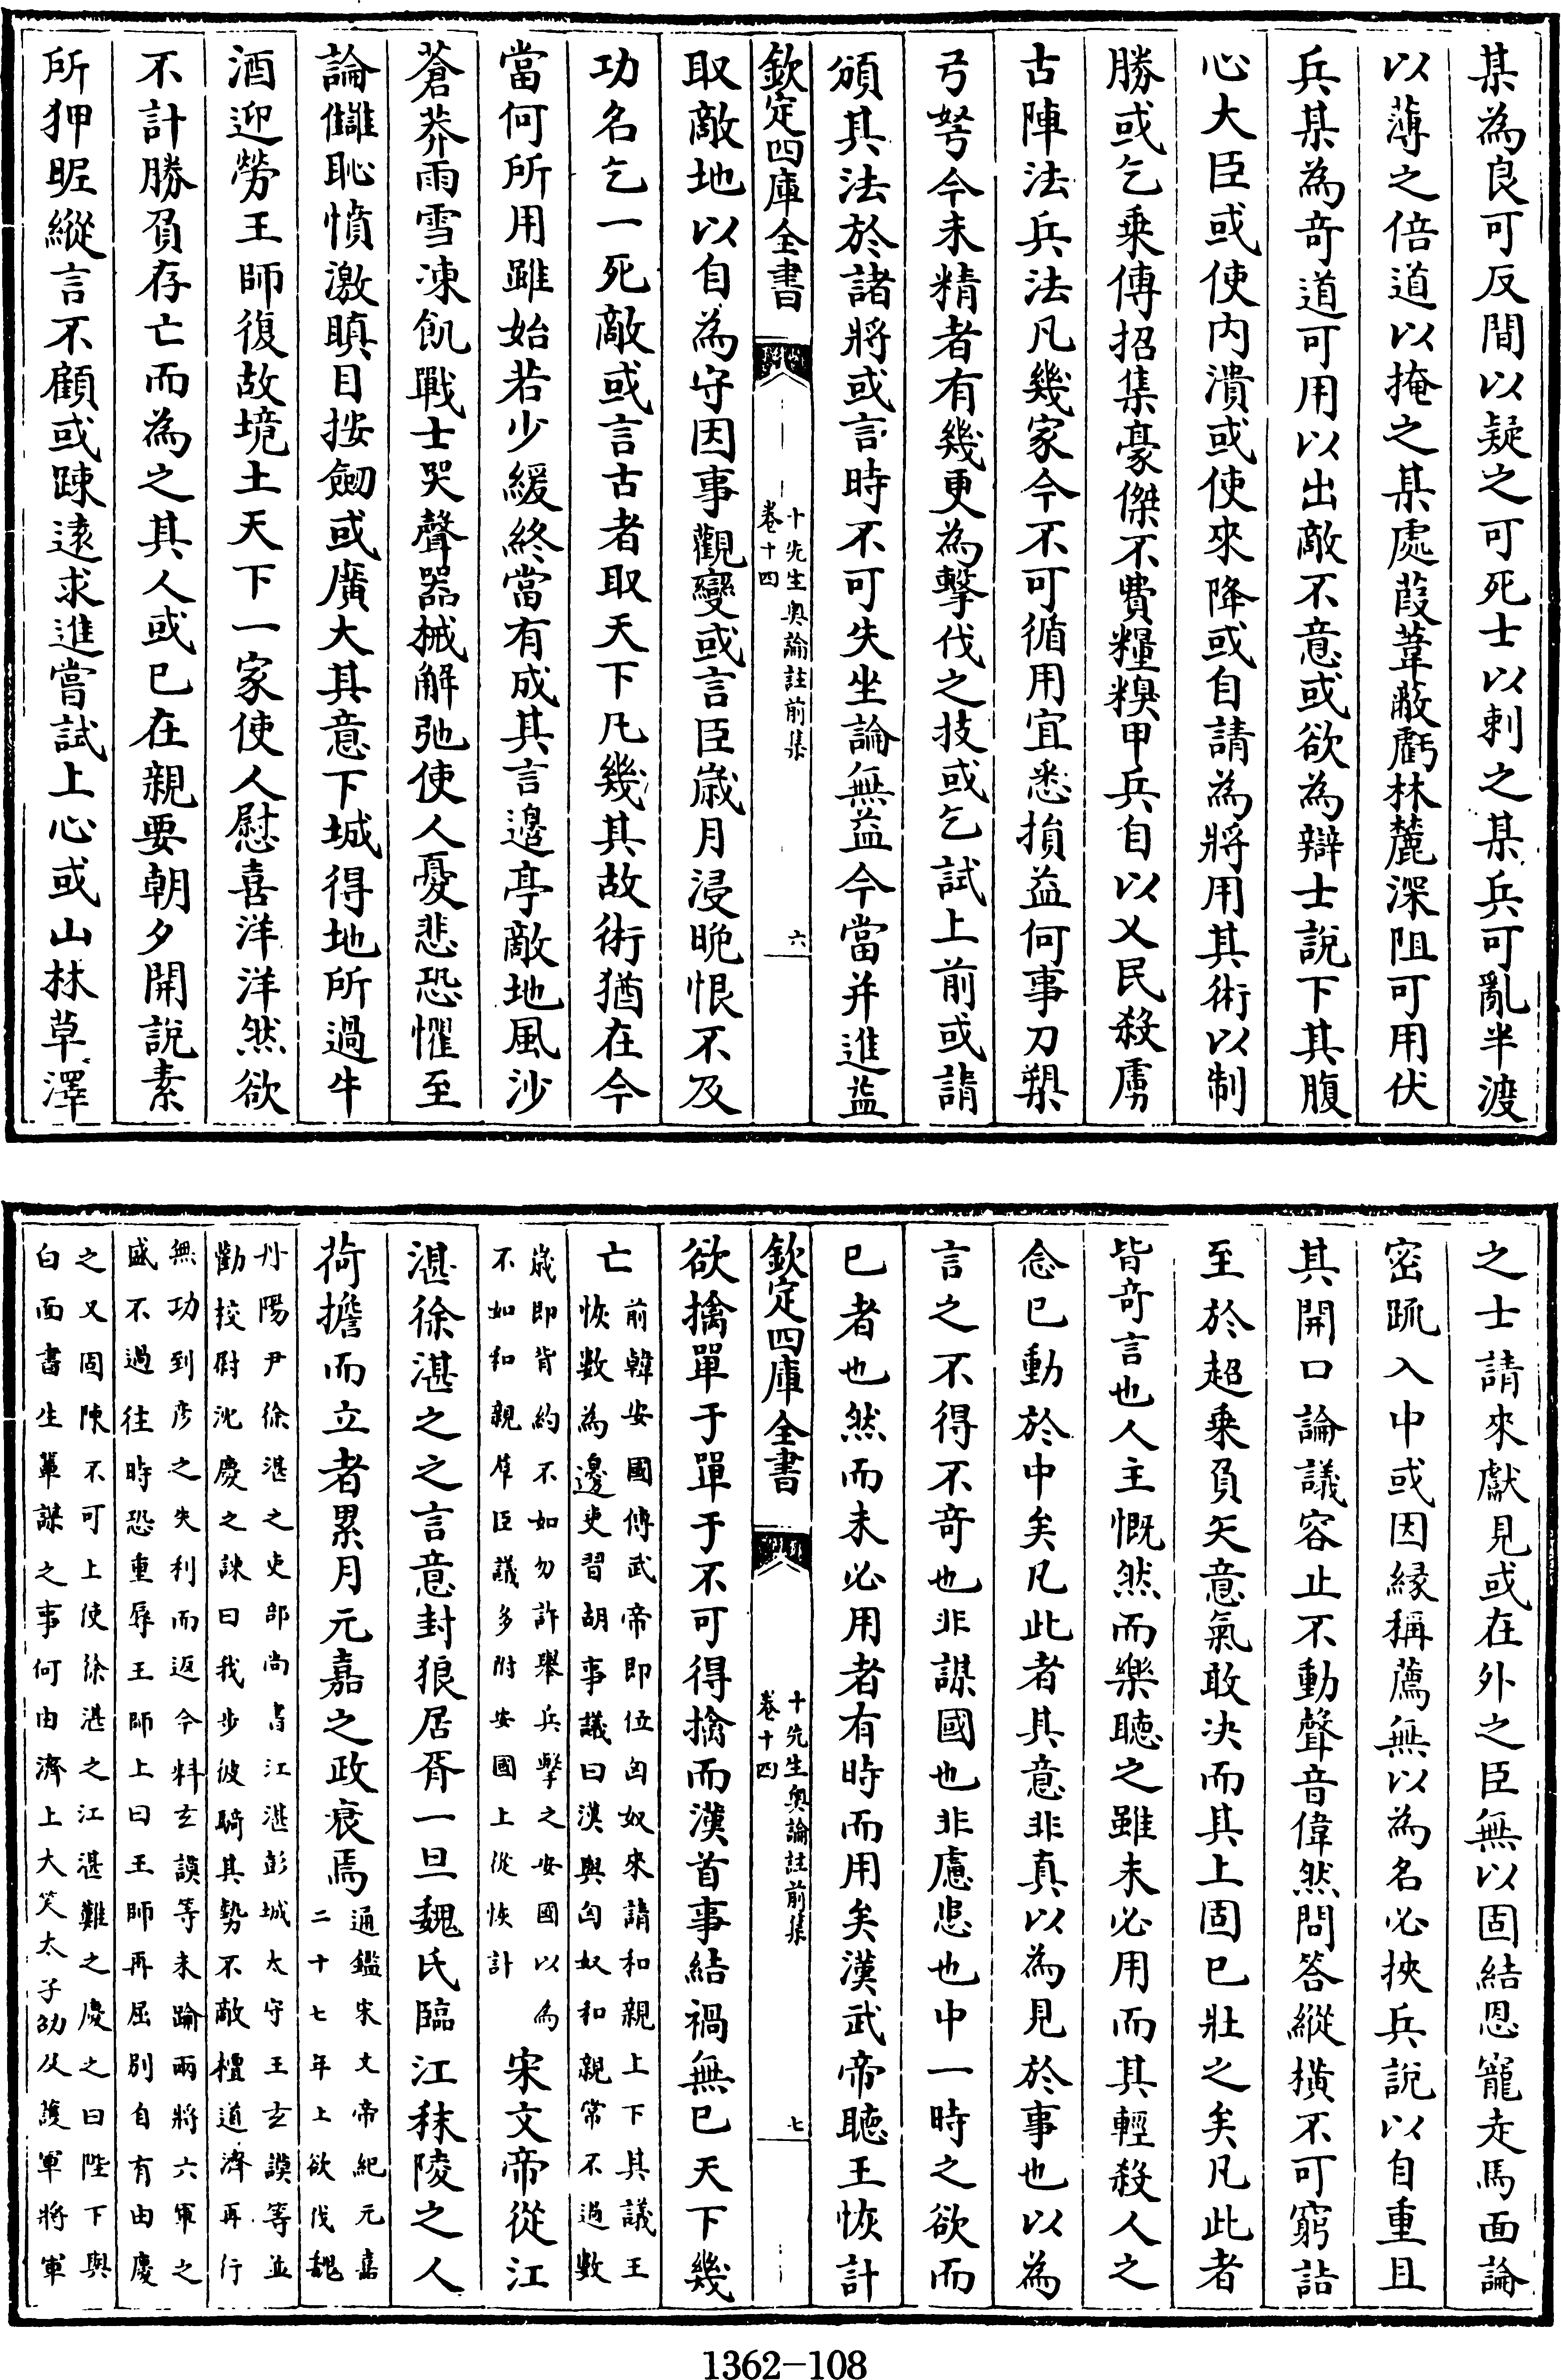 某為良可反間以疑之可死士以刺之某兵可亂半渡
以薄之倍道以掩之某處葭葦蔽虧林麓深阻可用伏
兵某為奇道可用以出敵不意或欲為辯士說下其腹
心大臣或使内潰或使來降或自請為將用其術以制
勝或乞乗傳招集豪傑不費糧糗甲兵自以乂民殺虜
古陣法兵法凡幾家今不可循用宜悉損益何事刀槊
弓弩今未精者有幾更為擊伐之技或乞試上前或請
頒其法於諸將或言時不可失坐論無益今當并進益
欽定四庫全書
十先生奥論註前集
卷十四
六
取敵地以自為守因事觀變或言臣歳月浸晚恨不及
功名乞一死敵或言古者取天下凡幾其故術猶在今
當何所用雖始若少緩終當有成其言邊亭敵地風沙
蒼莽雨雪凍飢戰士哭聲器械解弛使人憂悲恐懼至
論讎恥憤激瞋目按劒或廣大其意下城得地所過牛
酒迎勞王師復故境土天下一家使人慰喜洋洋然欲
不計勝負存亡而為之其人或已在親要朝夕開說素
所狎昵縱言不顧或踈逺求進嘗試上心或山林草澤
之士請來獻見或在外之臣無以固結恩寵走馬面論
密疏入中或因縁稱薦無以為名必挾兵說以自重且
其開口論議容止不動聲音偉然問答縱横不可窮詰
至於超乗負矢意氣敢决而其上固已壯之矣凡此者
皆奇言也人主慨然而樂聴之雖未必用而其輕殺人之
念已動於中矣凡此者其意非真以為見於事也以為
言之不得不奇也非謀國也非慮患也中一時之欲而
已者也然而未必用者有時而用矣漢武帝聴王恢計
欽定四庫全書
十先生奥論註前集
卷十四
七
欲擒單于單于不可得擒而漢首事結禍無已天下幾
亡
前韓安國傳武帝即位匈奴來請和親上下其議王
恢數為邊吏習胡事議曰漢與匈奴和親常不過數
歳即背約不如勿許舉兵擊之安國以為
不如和親羣臣議多附安國上從恢計
宋文帝從江
湛徐湛之之言意封狼居胥一旦魏氏臨江秣陵之人
荷擔而立者累月元嘉之政衰焉
通鑑宋文帝紀元嘉
二十七年上欲伐魏
丹陽尹徐湛之吏部尚書江湛彭城太守王玄謨等並
勸校尉沈慶之諫曰我步彼騎其勢不敵檀道濟再行
無功到彦之失利而返今料玄謨等未踰兩將六軍之
盛不過往時恐重辱王師上曰王師再屈別自有由慶
之又固陳不可上使徐湛之江湛難之慶之曰陛下與
白面書生軰謀之事何由濟上大笑太子劭及護軍將軍
1362-108